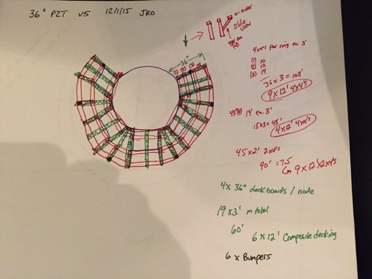 36" PZT V5 12/1/15 JRO
36"
4x4's per ring en. 3'
36 x 3 = 108'
9 x 12' 4x4's
15x3 = 45'
4 x 12' 4x4's
45 x 2' 2x4's
90' = 7.5
9 x 12' 2x4's
4 x 36" deckboards / node
19 x 3' m total
60'
6 x 12' Composite decking
6 x Bumpers